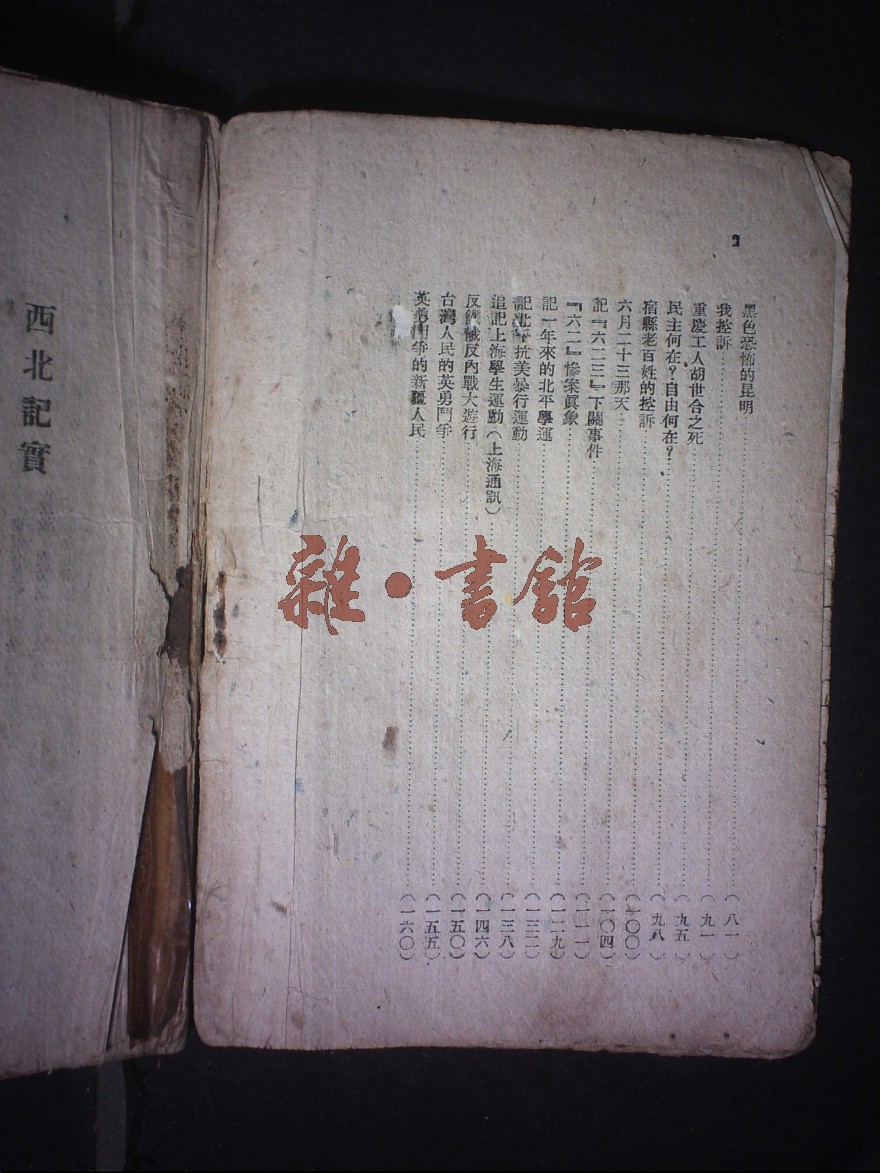 2
黑色恐怖的昆明……（八一）
我控訴……（九一）
重慶工人胡世合之死……（九五）
民主何在？自由何在？……（九八）
宿縣老百姓的控訴……（一〇〇）
六月二十三那天……（一〇四）
記『六二三』下關事件……（一一一）
『六二』慘案眞象……（一二九）
記一年來的北平學運……（一三二）
記北平抗美暴行運動……（一三八）
追記上海學生運動（上海通訊）……（一四六）
反饑餓反內戰大遊行……（一五〇）
台灣人民的英勇鬥爭……（一五五）
英勇鬥爭的新疆人民……（一六〇）
西北記實
雜·書館